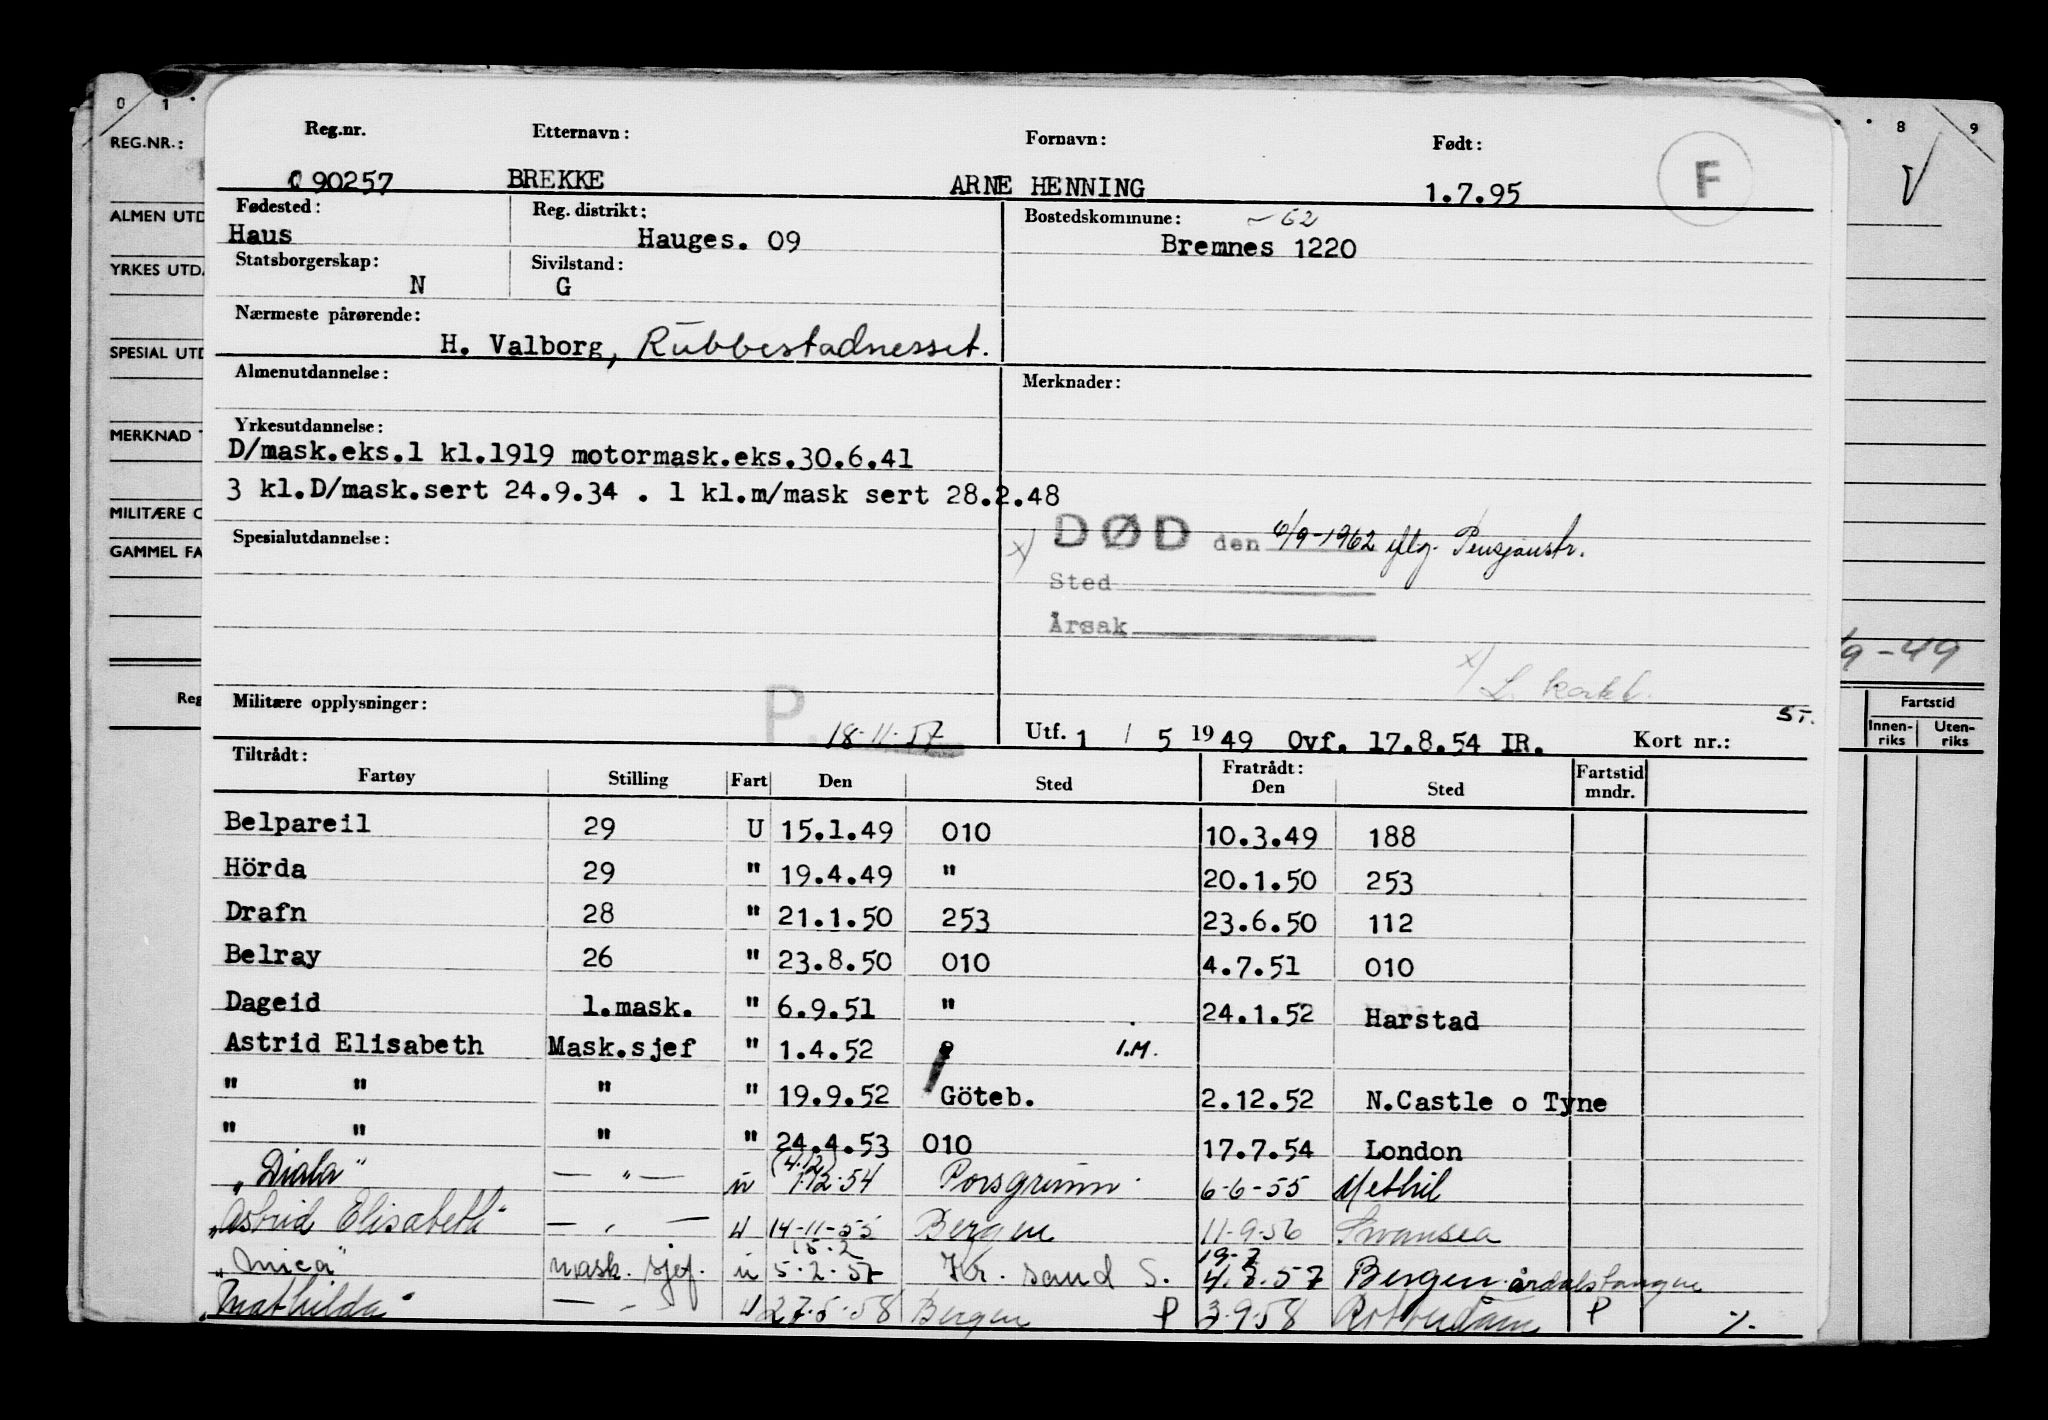 0 1 8 9
REG.NR.:
ALMEN UTD
YRKES UTD.
SPESIAL UTD
MERKNAD
MILITÆRE O
GAMMEL FA
/9-49
Reg
Fartstid
Innen-riks Uten-riks
Reg.nr. Etternavn: Fornavn: Født:
090257 BREKKE ARNE HENNING 1.7.95 F
Fødested: Reg. distrikt: Bostedskommune: -62
Haus Hauges. 09 Bremnes 1220
Statsborgerskap: Sivilstand:
N G
Nærmeste pårørende:
H. Valborg, Rubbestadnesset.
Almenutdannelse: Merknader:
Yrkesutdannelse:
D/mask.eks.1 kl.1919 motormask.eks.30.6.41
3 kl.D/mask.sert 24.9.34 . 1 kl.m/mask sert 28.2.48
Spesialutdannelse: x) DØD den /9-1962 iflg. Pensjonstr.
Sted
Årsak
x)
Militære opplysninger: P. 18-11-57 Utf. 1 / 5 1949 Ovf. 17.8.54 IR. Kort nr.: ST.
Tiltrådt: Fratrådt:
Fartøy Stilling Fart Den Sted Den Sted Fartstid mndr.
Belpareil 29 U 15.1.49 010 10.3.49 188
Hörda 29 " 19.4.49 " 20.1.50 253
Drafn 28 " 21.1.50 253 23.6.50 112
Belray 26 " 23.8.50 010 4.7.51 010
Dageid 1.mask. " 6.9.51 " 24.1.52 Harstad
Astrid Elisabeth Mask.sjef " 1.4.52 I.M.
" " " " 19.9.52 Göteb. 2.12.52 N.Castle o Tyne
" " " " 24.4.53 010 17.7.54 London
"Diala" — " — u (4.12) 1.12.54 Porsgrunn 6-6-55 Methil
"Astrid Elisabeth" — " — u 14-11-55 Bergen 11-9-56 Swansea
"Mica" mask. sjef. u 5.2.57 15.2 Kr. sand S. 4.7.57 19-7 Bergen årdalstangen
"Mathilda" — " u 27.5.58 Bergen P 3.9.58 Rotterdam P ./.